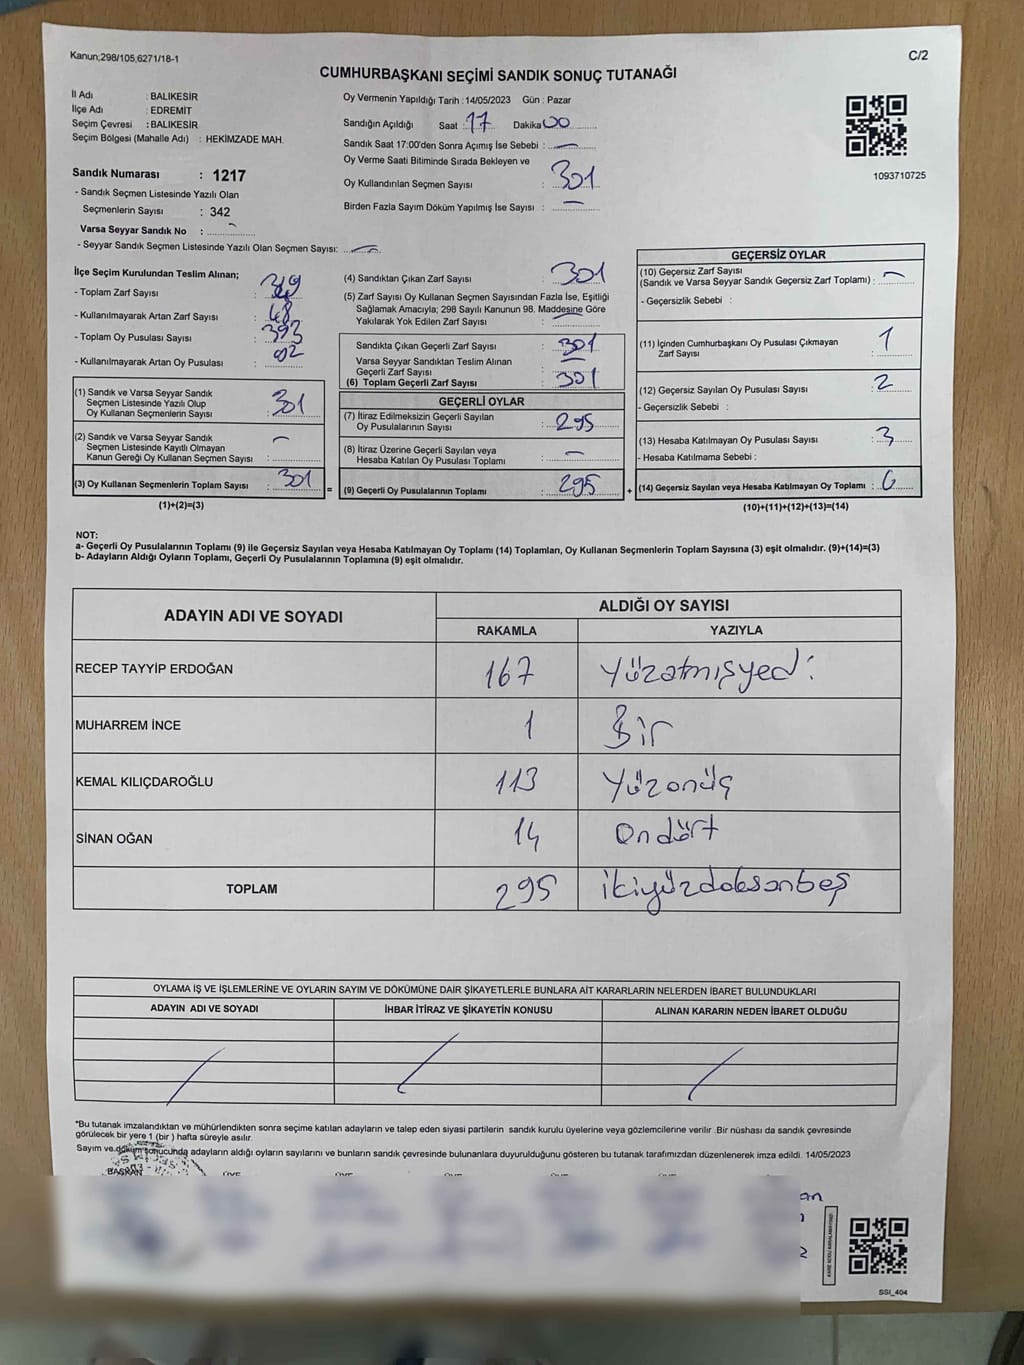 Kanun;298/105,6271/18-1
C/2
CUMHURBAŞKANI SEÇİMİ SANDIK SONUÇ TUTANAĞI
İl Adı : BALIKESİR
İlçe Adı : EDREMİT
Seçim Çevresi : BALIKESİR
Seçim Bölgesi (Mahalle Adı) : HEKİMZADE MAH.
Sandık Numarası : 1217
- Sandık Seçmen Listesinde Yazılı Olan
Seçmenlerin Sayısı : 342
Varsa Seyyar Sandık No :
- Seyyar Sandık Seçmen Listesinde Yazılı Olan Seçmen Sayısı:
Oy Vermenin Yapıldığı Tarih :14/05/2023 Gün : Pazar
Sandığın Açıldığı Saat : 17 Dakika 00
Sandık Saat 17:00'den Sonra Açımış İse Sebebi :
Oy Verme Saati Bitiminde Sırada Bekleyen ve
Oy Kullandırılan Seçmen Sayısı : 301
Birden Fazla Sayım Döküm Yapılmış İse Sayısı :
1093710725
İlçe Seçim Kurulundan Teslim Alınan;
- Toplam Zarf Sayısı :
- Kullanılmayarak Artan Zarf Sayısı : 48
- Toplam Oy Pusulası Sayısı : 393
- Kullanılmayarak Artan Oy Pusulası : 92
(1) Sandık ve Varsa Seyyar Sandık
Seçmen Listesinde Yazılı Olup
Oy Kullanan Seçmenlerin Sayısı : 301
(2) Sandık ve Varsa Seyyar Sandık
Seçmen Listesinde Kayıtlı Olmayan
Kanun Gereği Oy Kullanan Seçmen Sayısı :
(3) Oy Kullanan Seçmenlerin Toplam Sayısı : 301
(1)+(2)=(3)
(4) Sandıktan Çıkan Zarf Sayısı : 301
(5) Zarf Sayısı Oy Kullanan Seçmen Sayısından Fazla İse, Eşitliği
Sağlamak Amacıyla; 298 Sayılı Kanunun 98. Maddesine Göre
Yakılarak Yok Edilen Zarf Sayısı :
Sandıkta Çıkan Geçerli Zarf Sayısı : 301
Varsa Seyyar Sandıktan Teslim Alınan
Geçerli Zarf Sayısı :
(6) Toplam Geçerli Zarf Sayısı : 301
GEÇERLİ OYLAR
(7) İtiraz Edilmeksizin Geçerli Sayılan
Oy Pusulalarının Sayısı : 295
(8) İtiraz Üzerine Geçerli Sayılan veya
Hesaba Katılan Oy Pusulası Toplamı :
= (9) Geçerli Oy Pusulalarının Toplamı : 295 +
GEÇERSİZ OYLAR
(10) Geçersiz Zarf Sayısı
(Sandık ve Varsa Seyyar Sandık Geçersiz Zarf Toplamı) :
- Geçersizlik Sebebi :
(11) İçinden Cumhurbaşkanı Oy Pusulası Çıkmayan
Zarf Sayısı : 1
(12) Geçersiz Sayılan Oy Pusulası Sayısı : 2
- Geçersizlik Sebebi :
(13) Hesaba Katılmayan Oy Pusulası Sayısı : 3
- Hesaba Katılmama Sebebi :
(14) Geçersiz Sayılan veya Hesaba Katılmayan Oy Toplamı : 6
(10)+(11)+(12)+(13)=(14)
NOT:
a- Geçerli Oy Pusulalarının Toplamı (9) ile Geçersiz Sayılan veya Hesaba Katılmayan Oy Toplamı (14) Toplamları, Oy Kullanan Seçmenlerin Toplam Sayısına (3) eşit olmalıdır. (9)+(14)=(3)
b- Adayların Aldığı Oyların Toplamı, Geçerli Oy Pusulalarının Toplamına (9) eşit olmalıdır.
ADAYIN ADI VE SOYADI
ALDIĞI OY SAYISI
RAKAMLA YAZIYLA
RECEP TAYYİP ERDOĞAN 167 Yüzatmışyedi
MUHARREM İNCE 1 Bir
KEMAL KILIÇDAROĞLU 113 Yüzonüç
SİNAN OĞAN 14 Ondört
TOPLAM 295 ikiyüzdoksanbeş
OYLAMA İŞ VE İŞLEMLERİNE VE OYLARIN SAYIM VE DÖKÜMÜNE DAİR ŞİKAYETLERLE BUNLARA AİT KARARLARIN NELERDEN İBARET BULUNDUKLARI
ADAYIN ADI VE SOYADI İHBAR İTİRAZ VE ŞİKAYETİN KONUSU ALINAN KARARIN NEDEN İBARET OLDUĞU
*Bu tutanak imzalandıktan ve mühürlendikten sonra seçime katılan adayların ve talep eden siyasi partilerin sandık kurulu üyelerine veya gözlemcilerine verilir .Bir nüshası da sandık çevresinde
görülecek bir yere 1 (bir ) hafta süreyle asılır.
Sayım ve döküm sonucunda adayların aldığı oyların sayılarını ve bunların sandık çevresinde bulunanlara duyurulduğunu gösteren bu tutanak tarafımızdan düzenlenerek imza edildi. 14/05/2023
BAŞKAN
SSI_404